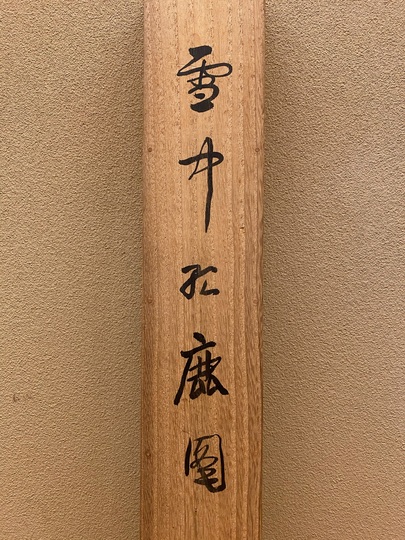 雪中鹿圖